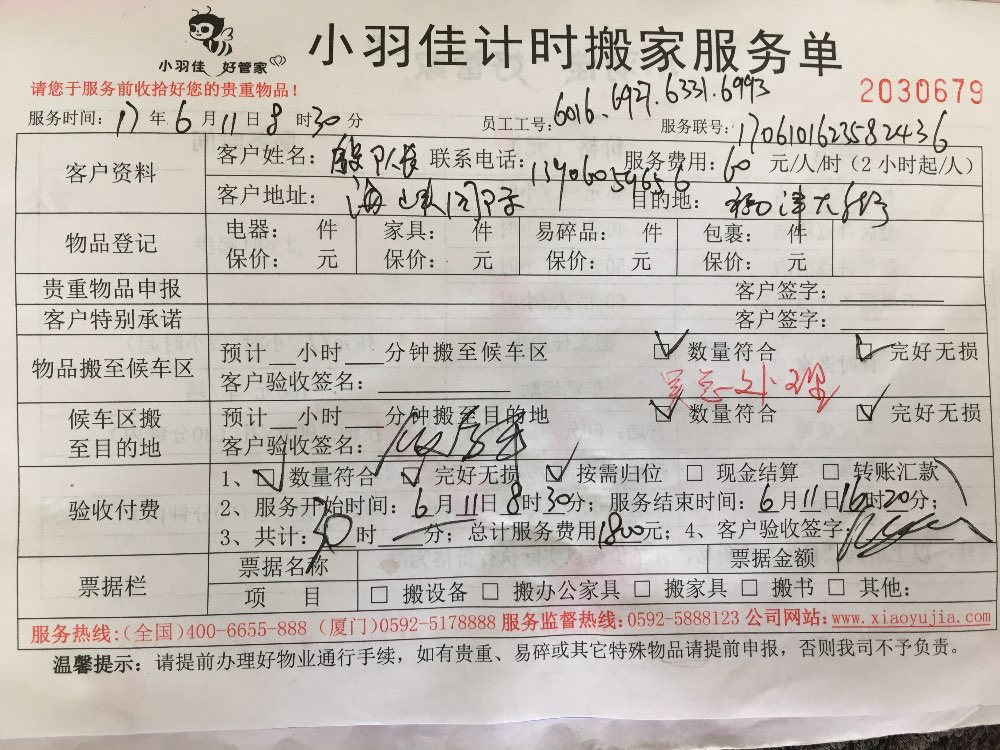 小羽佳 好管家
小羽佳计时搬家服务单
请您于服务前收拾好您的贵重物品！
2030679
服务时间：17年6月11日8时30分 员工工号：6016.6927.6331.6993 服务联号：170610162358 2436
客户资料 客户姓名：队长 联系电话：13406059656 服务费用：60元/人/时（2小时起/人）
客户地址： 目的地：
物品登记 电器： 件 家具： 件 易碎品： 件 包裹： 件
保价： 元 保价： 元 保价： 元 保价： 元
贵重物品申报 客户签字：
客户特别承诺 客户签字：
物品搬至候车区 预计 小时 分钟搬至候车区 数量符合 完好无损
客户验收签名：
候车区搬至目的地 预计 小时 分钟搬至目的地 数量符合 完好无损
客户验收签名：
验收付费 1、数量符合 完好无损 按需归位 现金结算 转账汇款
2、服务开始时间：6月11日8时30分；服务结束时间：6月11日16时20分；
3、共计：30时 分；总计服务费用1800元；4、客户验收签字：
票据栏 票据名称 票据金额
项目 搬设备 搬办公家具 搬家具 搬书 其他：
服务热线：(全国)400-6655-888 (厦门)0592-5178888 服务监督热线：0592-5888123 公司网站：www.xiaoyujia.com
温馨提示：请提前办理好物业通行手续，如有贵重、易碎或其它特殊物品请提前申报，否则我司不予负责。